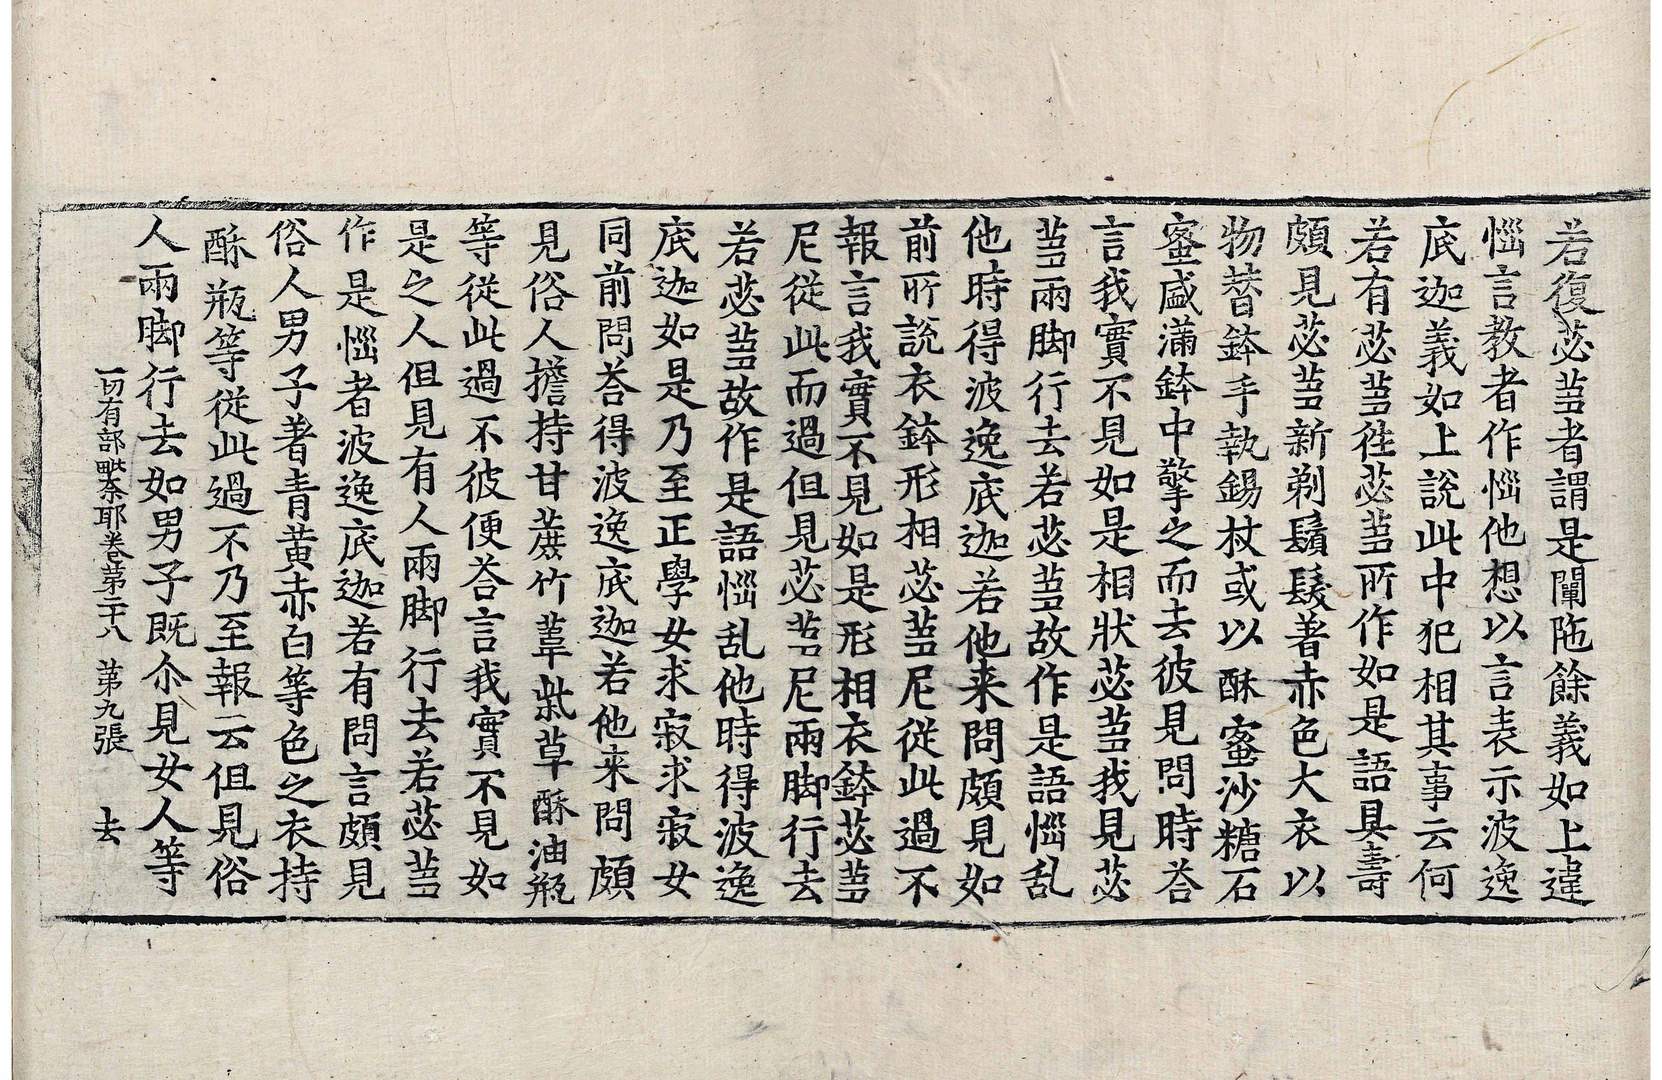 若復苾芻者謂是闡陁餘義如上違
惱言教者作惱他想以言表示波逸
底迦義如上說此中犯相其事云何
若有苾芻徃苾芻所作如是語具壽
頗見苾芻新剃鬚髮著赤色大衣以
物替鉢手執錫杖或以酥蜜沙糖石
蜜盛滿鉢中擎之而去彼見問時荅
言我實不見如是相狀苾芻我見苾
芻兩脚行去若苾芻故作是語惱乱
他時得波逸底迦若他来問頗見如
前所說衣鉢形相苾芻尼從此過不
報言我實不見如是形相衣鉢苾芻
尼從此而過但見苾芻尼兩脚行去
若苾芻故作是語惱乱他時得波逸
底迦如是乃至正學女求寂求寂女
同前問荅得波逸底迦若他来問頗
見俗人擔持甘蔗竹葦柴草酥油瓶
等從此過不彼便荅言我實不見如
是之人但見有人兩脚行去若苾芻
作是惱者波逸底迦若有問言頗見
俗人男子著青黃赤白等色之衣持
酥瓶等從此過不乃至報云但見俗
人兩脚行去如男子既尒見女人等
一切有部毗柰耶卷第三十八 第九張 去